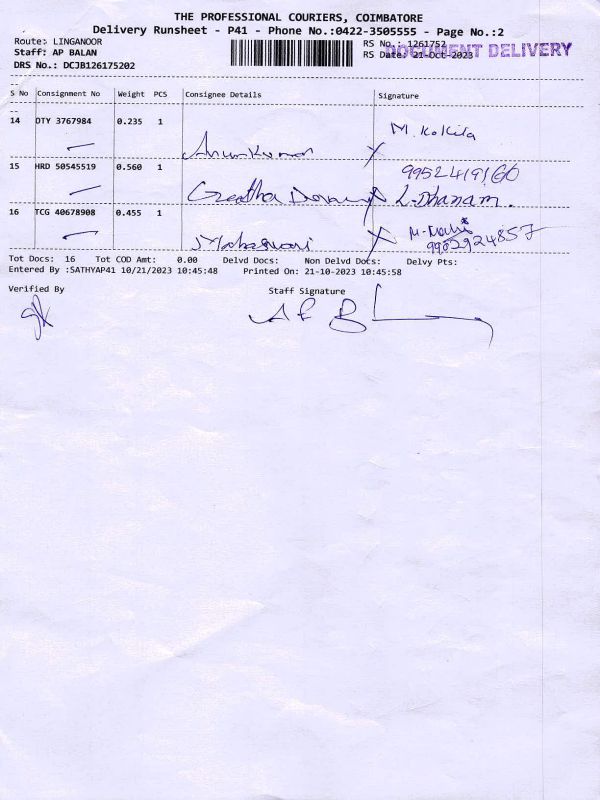 THE PROFESSIONAL COURIERS, COIMBATORE
Delivery Runsheet - P41 - Phone No.:0422-3505555 - Page No.:2
Route: LINGANOOR
RS No.: 1261752
DOCUMENT DELIVERY
Staff: AP BALAN
RS Date: 21-Oct-2023
DRS No.: DCJB126175202
S No Consignment No Weight PCS Consignee Details Signature
14 DTY 3767984 0.235 1
Arunkumar M. Kokila
15 HRD 50545519 0.560 1
Geetha L-Dhanam.
16 TCG 40678908 0.455 1
9902924857
Tot Docs: 16 Tot COD Amt: 0.00 Delvd Docs: Non Delvd Docs: Delvy Pts:
Entered By :SATHYAP41 10/21/2023 10:45:48 Printed On: 21-10-2023 10:45:58
Verified By Staff Signature